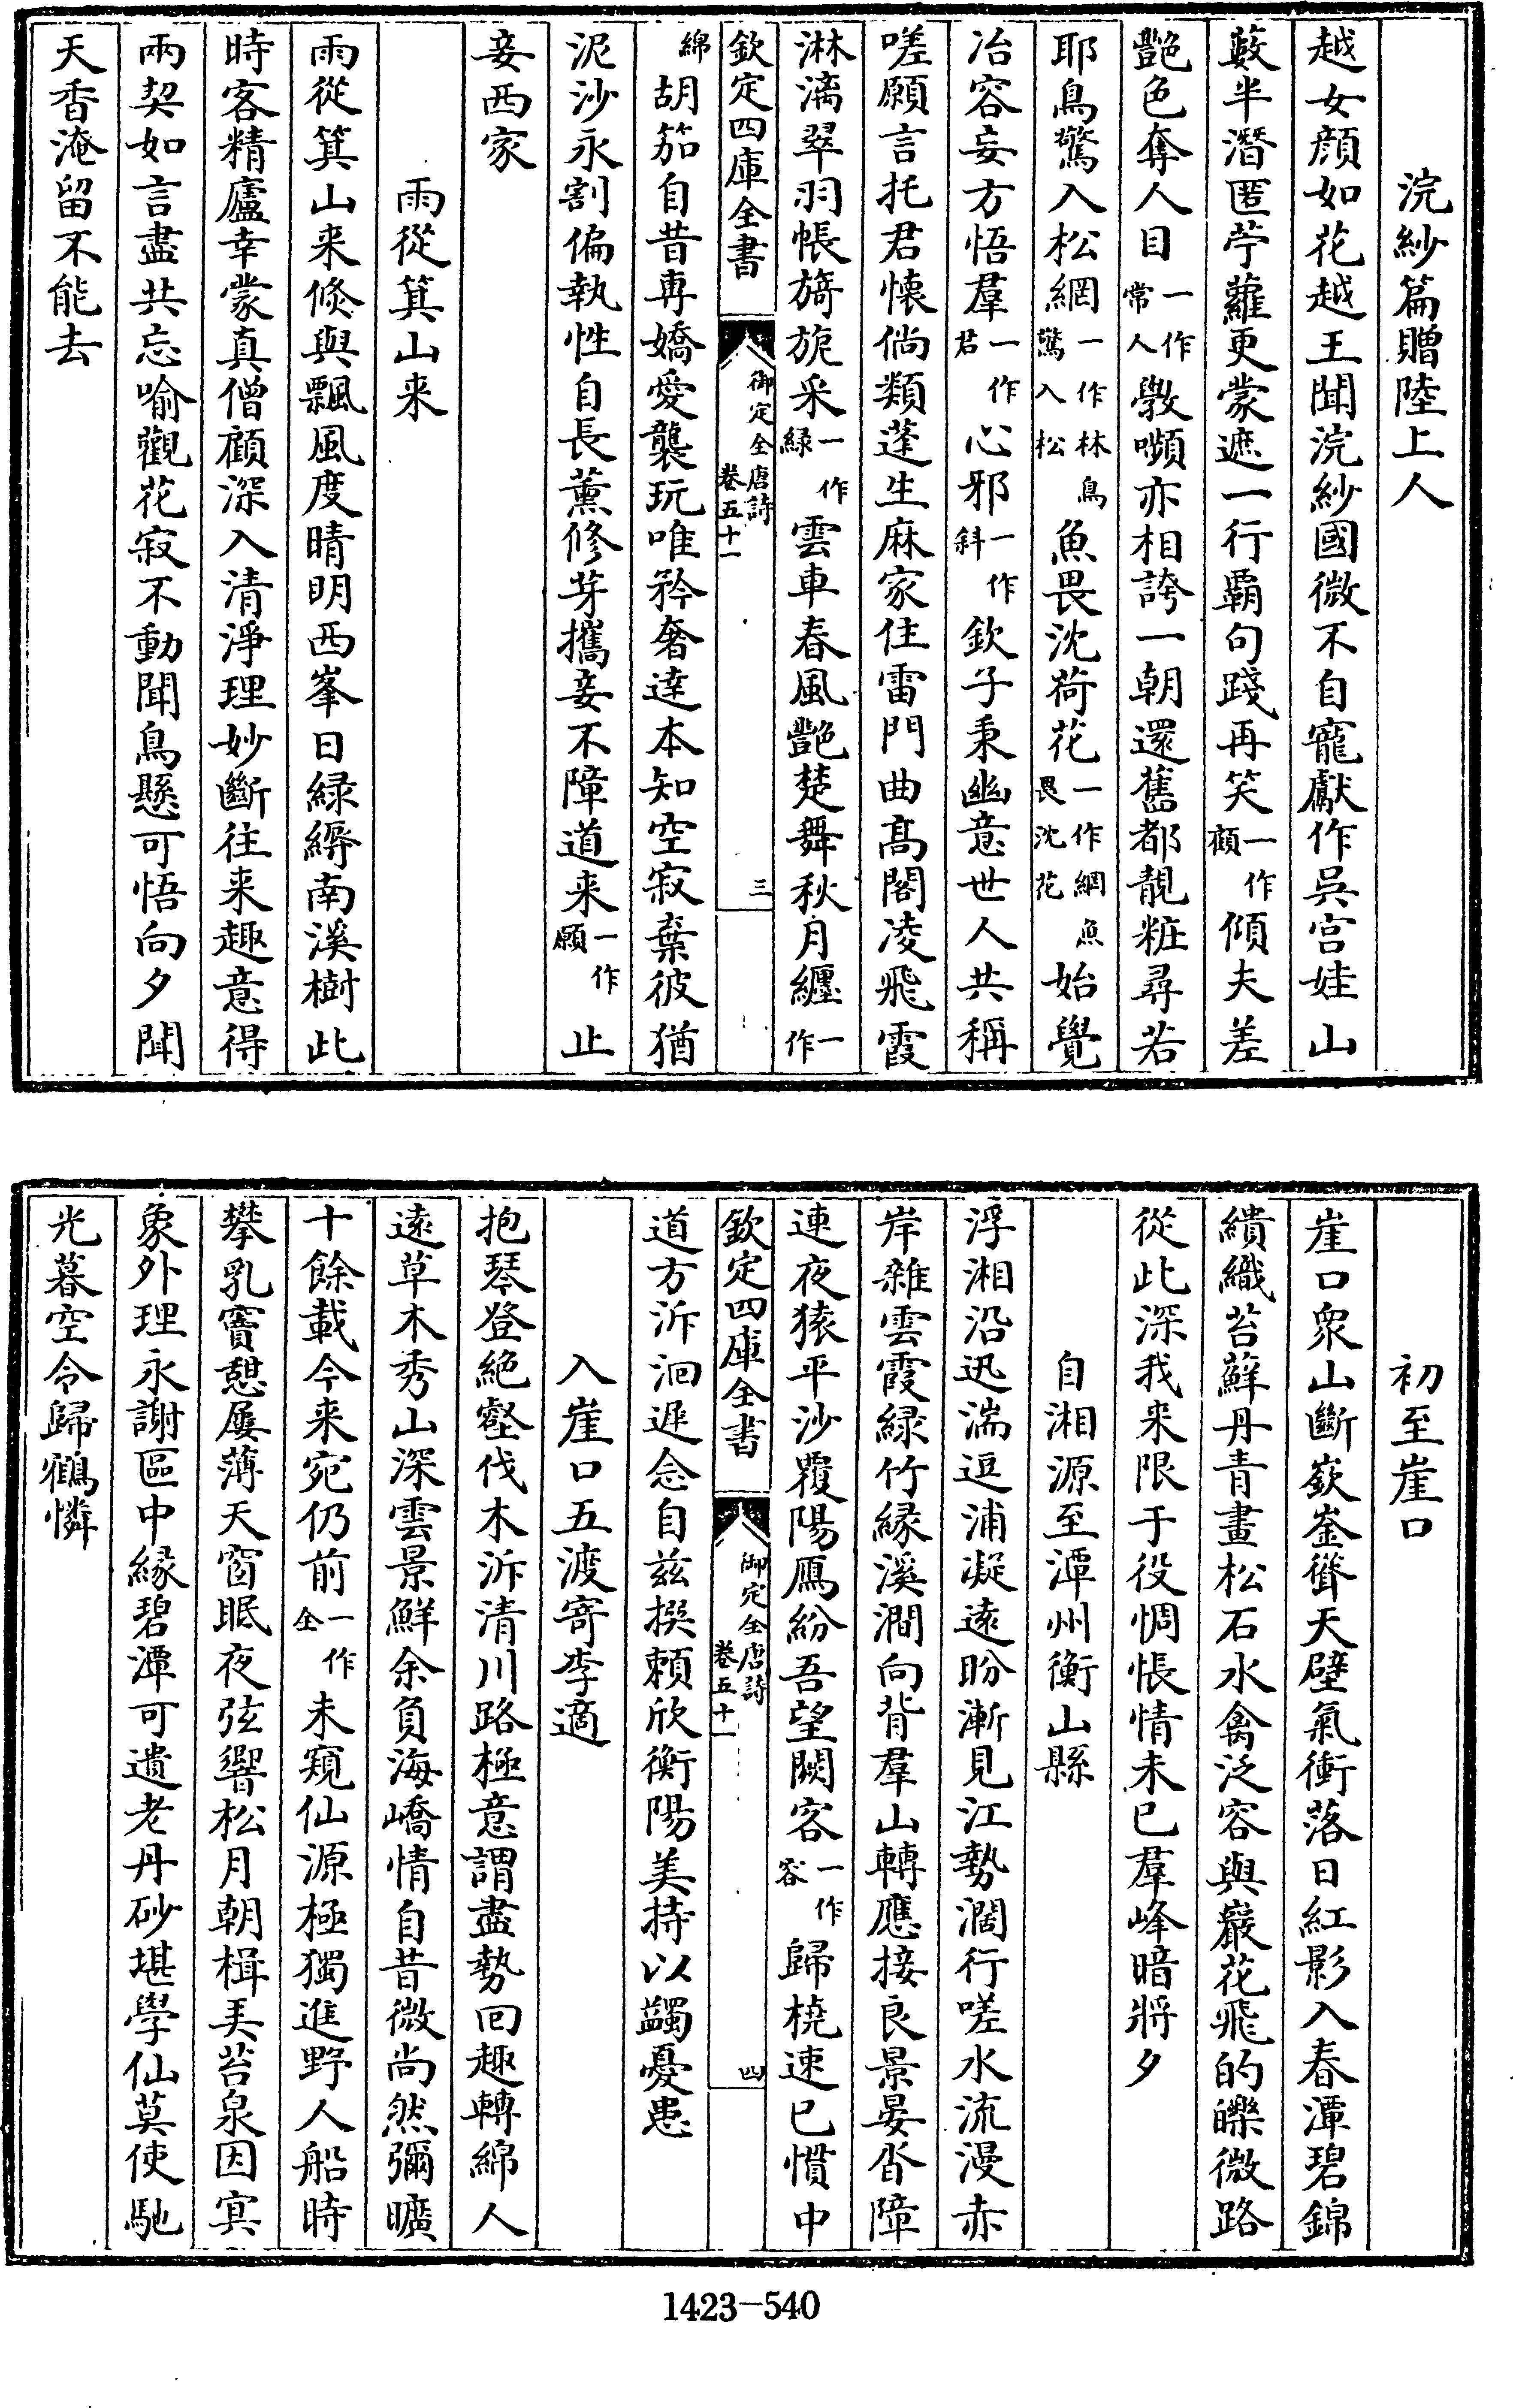 浣紗篇贈陸上人
越女顏如花越王聞浣紗國微不自寵獻作吳宫娃山
藪半潛匿苧蘿更蒙遮一行霸句踐再笑一作顧傾夫差
艷色奪人目一作常人斆嚬亦相誇一朝還舊都靚粧尋若
耶鳥驚入松網一作林鳥驚入松魚畏沈荷花一作網魚畏沈花始覺
冶容妄方悟羣一作君心邪一作斜欽子秉幽意世人共稱
嗟願言托君懷倘類蓬生麻家住雷門曲髙閣凌飛霞
淋漓翠羽帳旖旎采一作緑雲車春風艷楚舞秋月纏一作
欽定四庫全書 御定全唐詩 卷五十一 三
綿胡笳自昔專嬌愛襲玩唯矜奢逹本知空寂棄彼猶
泥沙永割偏執性自長薰修芽攜妾不障道来一作願止
妾西家
雨從箕山来
雨從箕山来倐與飄風度晴明西峯日緑縟南溪樹此
時客精廬幸蒙真僧顧深入清淨理妙斷往来趣意得
兩契如言盡共忘喻觀花寂不動聞鳥懸可悟向夕聞
天香淹留不能去
初至崖口
崖口衆山斷嶔崟聳天壁氣衝落日紅影入春潭碧錦
繢織苔蘚丹青畫松石水禽泛容與巖花飛的皪微路
從此深我来限于役惆悵情未已羣峰暗將夕
自湘源至潭州衡山縣
浮湘沿迅湍逗浦凝遠盼漸見江勢濶行嗟水流漫赤
岸雜雲霞緑竹緣溪澗向背羣山轉應接良景晏沓障
連夜猿平沙覆陽鴈紛吾望闕客一作容歸橈速已慣中
欽定四庫全書 御定全唐詩 卷五十一 四
道方泝洄遲念自兹撰頼欣衡陽美持以蠲憂患
入崖口五渡寄李適
抱琴登絶壑伐木泝清川路極意謂盡勢回趣轉綿人
遠草木秀山深雲景鮮余負海嶠情自昔微尚然彌曠
十餘載今来宛仍前一作全未窺仙源極獨進野人船時
攀乳竇憇屢薄天窗眠夜弦響松月朝楫弄苔泉因冥
象外理永謝區中緣碧潭可遺老丹砂堪學仙莫使馳
光暮空令歸鶴憐
1423-540